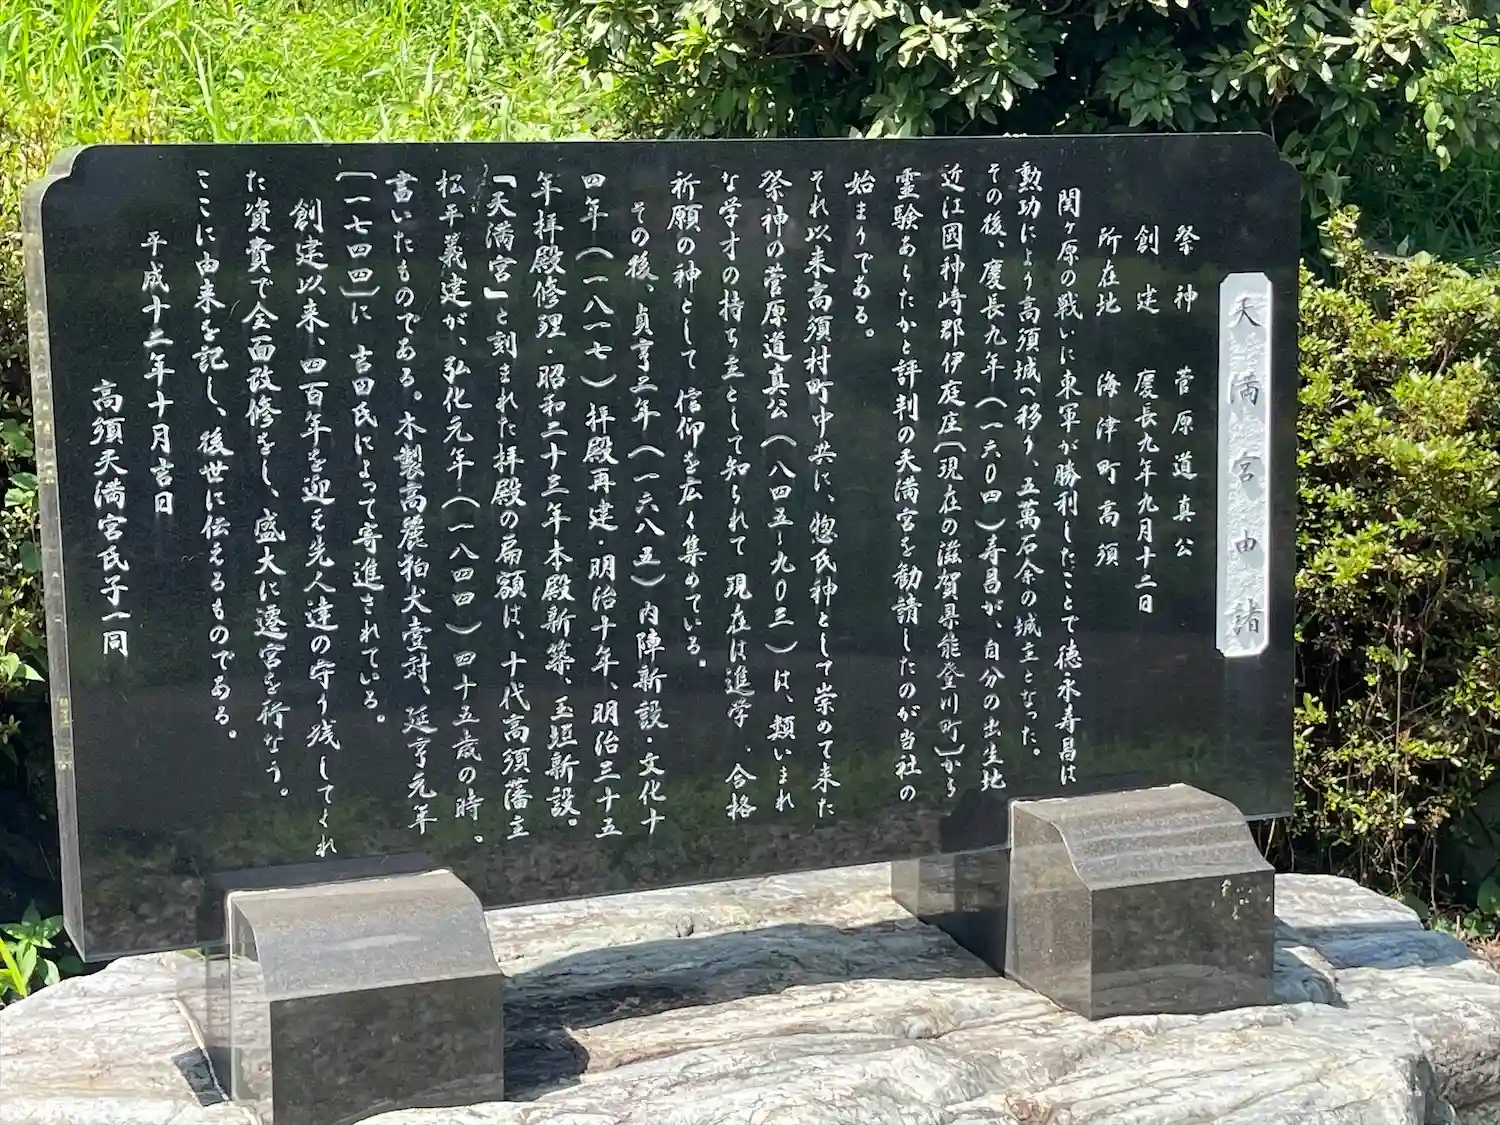 天満宮由緒
祭神　菅原道真公
創建　慶長九年九月十二日
所在地　海津町高須
関ヶ原の戦いに東軍が勝利したことで徳永寿昌は
勲功により高須城へ移り、五萬石余の城主となった。
その後、慶長九年(一六〇四)寿昌が、自分の出生地
近江國神崎郡伊庭庄〔現在の滋賀県能登川町〕から
霊験あらたかと評判の天満宮を勧請したのが当社の
始まりである。
それ以来高須村町中共に、惣氏神として崇めて来た
祭神の菅原道真公(八四五〜九〇三)は、類いまれ
な学才の持ち主として知られて 現在は進学、合格
祈願の神として 信仰を広く集めている。
その後、貞享二年(一六八五)内陣新設・文化十
四年(一八一七)拝殿再建・明治十年、明治三十五
年拝殿修理・昭和二十三年本殿新築、玉垣新設。
「天満宮」と刻まれた拝殿の扁額は、十代高須藩主
松平義建が、弘化元年(一八四四)四十五歳の時、
書いたものである。木製高麗狛犬壹対、延享元年
〔一七四四〕に 吉田氏によって寄進されている。
創建以来、四百年を迎え先人達の守り残してくれ
た資費で全面改修をし、盛大に遷宮を行なう。
ここに由来を記し、後世に伝えるものである。
平成十二年十月吉日
高須天満宮氏子一同